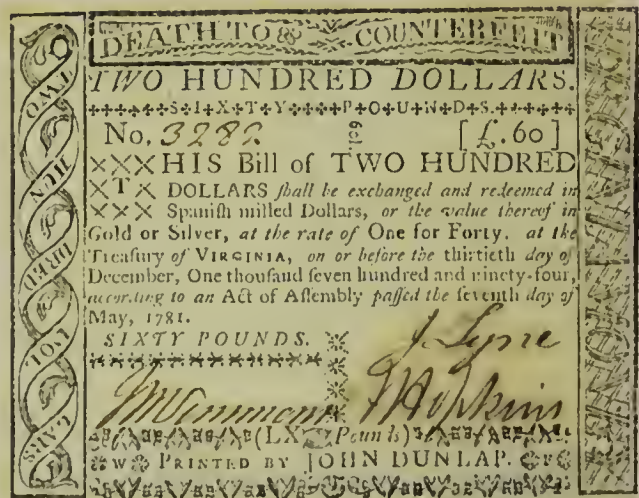 DEATH TO & COUNTERFEIT
TWO HUNDRED DOLLARS.
S I X T Y P O U N D S
No. 3282 [£.60]
THIS Bill of TWO HUNDRED
DOLLARS ſhall be exchanged and redeemed in
Spaniſh milled Dollars, or the value thereof in
Gold or Silver, at the rate of One for Forty, at the
Treaſury of VIRGINIA, on or before the thirtieth day of
December, One thouſand ſeven hundred and ninety-four,
according to an Act of Aſſembly paſſed the ſeventh day of
May, 1781.
SIXTY POUNDS.
J. Lyne
J Hopkins
(LX Pounds)
W PRINTED BY JOHN DUNLAP.
TWO HUN DRED DOL LARS